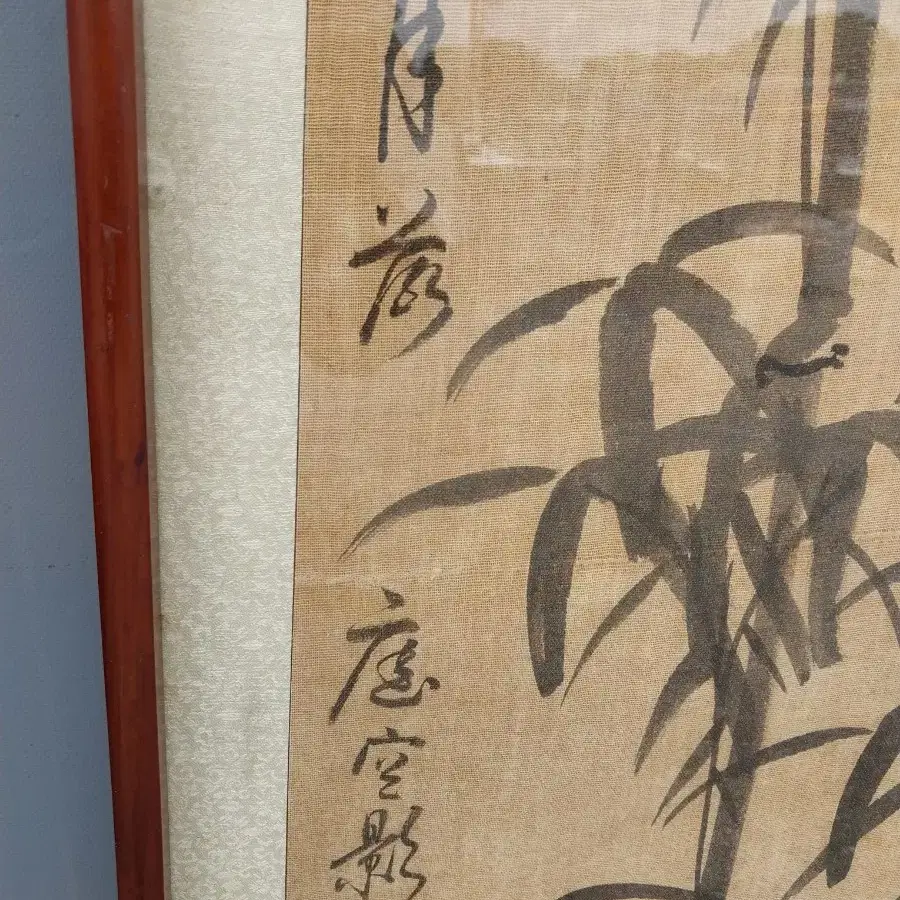 月落庭空影